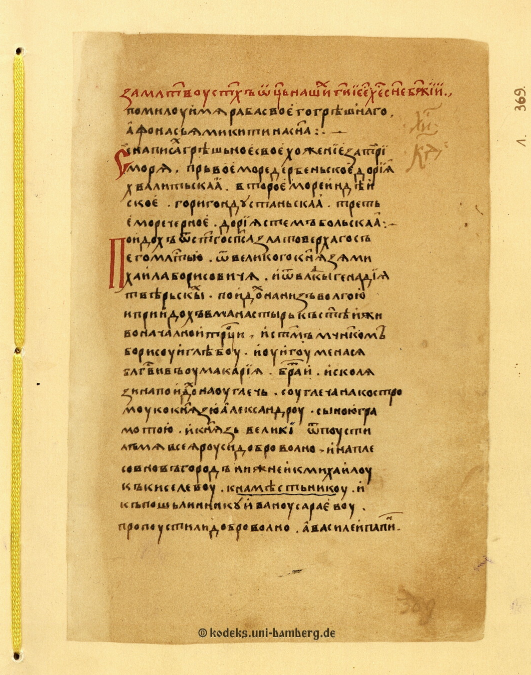 за млт҃въ ѹстх҃ъ ѿц҃ь нашиⷯ ги҃ іс҃е х҃е сн҃е бж҃ій,
помилоуи мѧ раба своего грѣшнаго
аѳонасьѧ микитина сн҃а:
Се написаⷯ грѣшьное свое хоженїе за три
морѧ. прьвое море дербеньское дорїа
хвалитьскаа. второе море индѣи
ское. гори гондустаньскаа. третье
е море черное. дорїа стембольскаа:
Поидохъ ѿ ст҃го сп҃са златоверхаго съ
его млтїю. ѿ великого кнѧзѧ ми
хаила борисовичѧ, и ѿ влⷣкы генадїа
твѣрьскыⷯ. поидоⷯ на низъ волгою
и приидохъ в манастырь къ ст҃ѣи жи
воначалнои трци, и ст҃мъ мчнкомъ
борисоу и глѣбоу. и оу игоумена сѧ
блгⷭвивъ оу макарїа. братїи. и с колѧ
зина поидоⷯ на оуглечь. с оуглеча на костро
моу ко кнѧзю александроу. с ыною гра
мотою. и кнѧзь великї ѿпоусти
мѧ всеѧ роуси доброволно. и на пле
со в новъгородъ нижнеи к михаилоу
къ киселевоу. к намѣстьникоу. и
къ пошьлинникꙋ ивану сараевоу.
пропоустили доброволно. а василеи папиⁿ.
369.
© kodeks.uni-bamberg.de